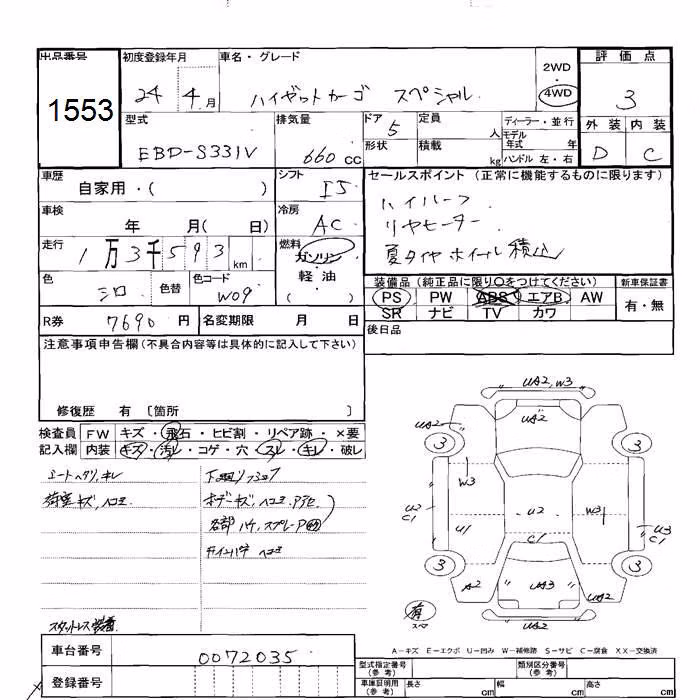 出品番号 初度登録年月 車名・グレード 2WD 評価点
1553 24 4月 ハイゼットカーゴ スペシャル 4WD 3
型式 排気量 ドア 定員 ディーラー・並行 外装 内装
EBD-S331V 660 CC 5 人 モデル年式 年 D C
形状 積載 kg ハンドル 左・右
車歴 自家用・( ) シフト I5 セールスポイント (正常に機能するものに限ります)
車検 年 月( 日) 冷房 AC ハイルーフ
リヤヒーター
走行 1万3千593 km 燃料 ガソリン・軽油 ( ) 夏タイヤホイール積込
色 シロ 色替 色コード W09 装備品 (純正品に限り〇をつけてください) 新車保証書
PS PW ABS エアB AW 有・無
SR ナビ TV カワ
R券 7690 円 名変期限 月 日 後日品
注意事項申告欄(不具合内容等は具体的に記入して下さい)
修復歴 有 〔箇所 〕
検査員 FW キズ・飛石・ヒビ割・リペア跡・×要
記入欄 内装 キズ・汚レ・コゲ・穴・スレ・キレ・破レ
シートヘタリ,キレ 下回リ
荷室キズ,ヘコミ ボデーキズ,ヘコミ
各部 スプレー
ヘコミ
スタットレス装着
UA2,W3
UA2 UA2
3 3
W3
U2 C1 U1 U2 W3 U3 C1
C1
3 3
A2 UA3 UA2
UA2
有
A-キズ E-エクボ U-凹み W-補修跡 S-サビ C-腐食 XX-交換済
車台番号 0072035 型式指定番号(参考) 類別区分番号(参考)
登録番号 車庫証明用(参考) 長さ cm 幅 cm 高さ cm